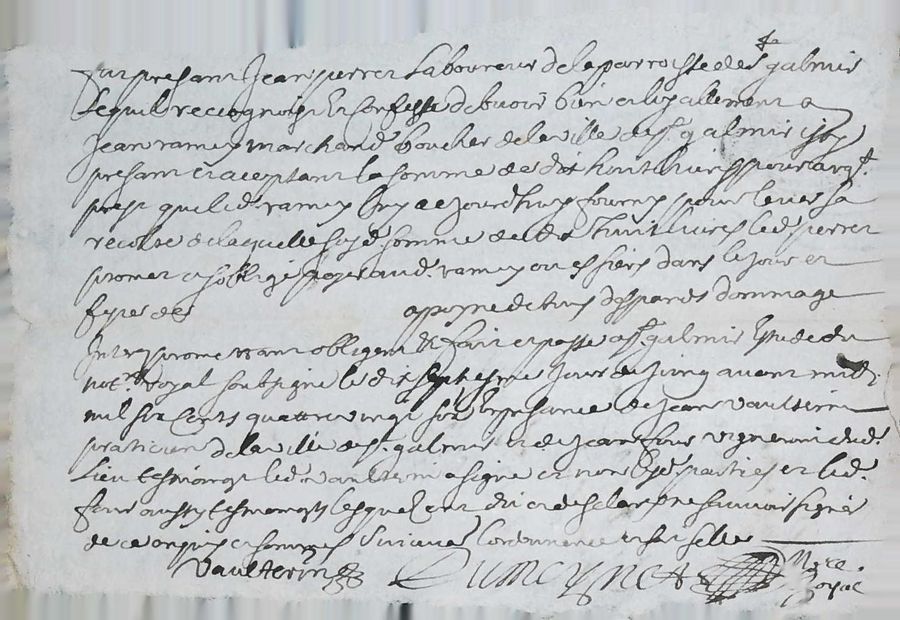 Fut presant Jean perrer Laboureur de la parroisse de st galmier
Lequel recognoist et confesse debvoir bien et loyallement a
Jean ramey marchand boucher de la ville de st. galmier icy
presant et aceptant la somme de dix huict livres pour argt.
prest que led. ramey luy a ce jourdhuy fourny pour lever sa
recolte de laquelle susd. somme de dix huict livres led. perrer
promet et soblige payer aud. ramey ou es siens dans le jour et
feste de apeyne de tous despands dommage
Interestz promettant obligent &c fait et passe a st galmier estude du
notre. royal soubsigne le dix septiesme jour de juing avant midy
mil six cents quattre vingt six en presance de Jean vaulterin
praticien de la ville de st. galmier et de Jean four vigneron dud.
Lieu tesmoings led. vaulterin a signe et non lesd. parties et led.
four aussy tesmoingts lesquelz ont dict et declare ne scavoir signer
de ce enquis et sommes suivant lordonnance
Vaulterin Dumeynet Nore.
Royal